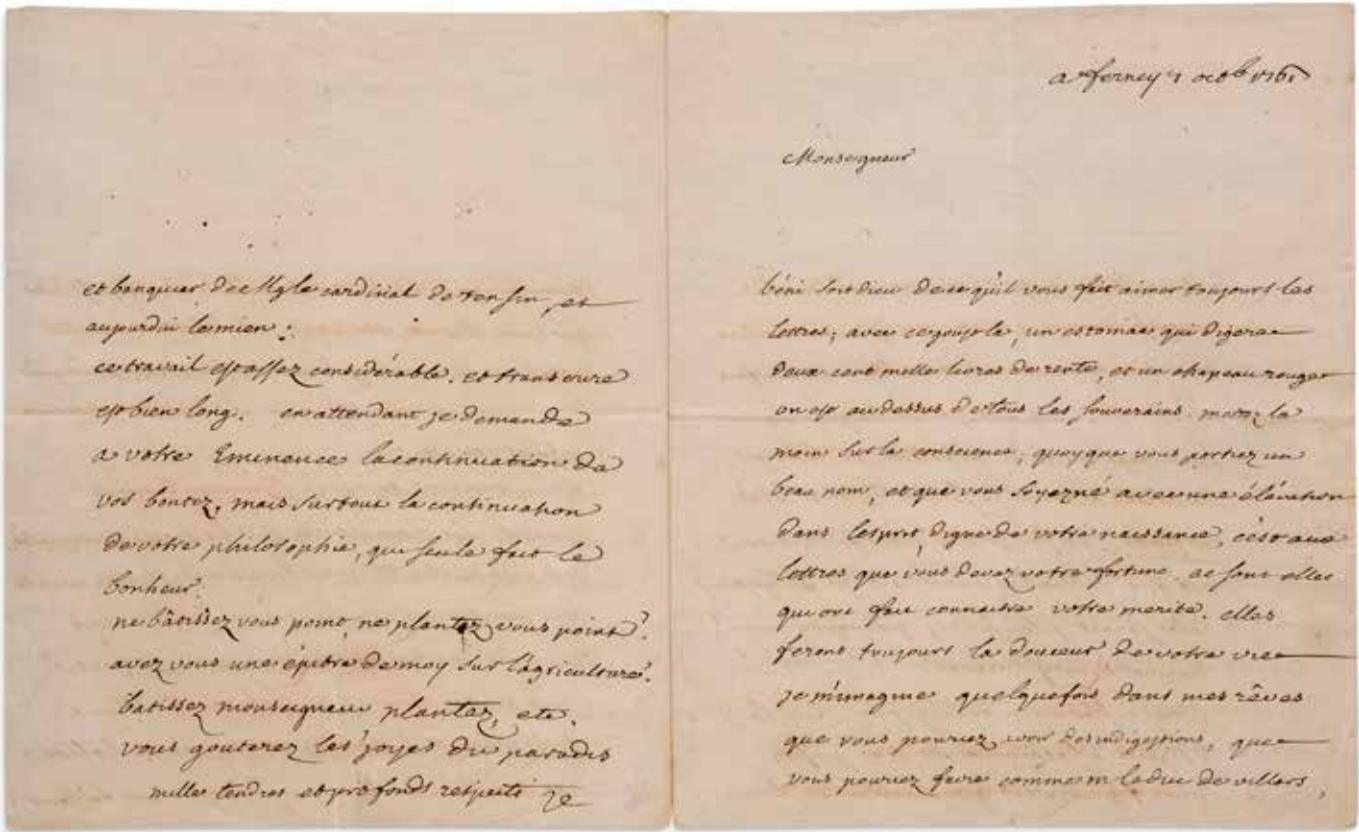 et banquier de Mg le cardinal de tensin, et
aujourdui le mien :
ce travail est assez considérable. et transcrire
est bien long. en attendant je demande
a votre Eminence la continuation de
vos bontez, mais surtout la continuation
de votre philosophie, qui seule fait le
bonheur.
ne bâtissez vous point, ne plantez vous point?
avez vous une épitre de moy sur l'agriculture?
batissez monseigneur plantez, etc.
vous gouterez les joyes du paradis
mille tendres et profonds respects
a ferney octb 1761
Monseigneur
béni soit dieu de ce qu'il vous fait aimer toujours les
lettres; avec ce goust la, un estomac qui digere
deux cent mille livres de rente, et un chapeau rouge
on est au dessus de tous les souverains. mettez la
main sur la conscience, quoyque vous portiez un
beau nom, et que vous soyez né avec une élévation
dans l'esprit digne de votre naissance, c'est aux
lettres que vous devez votre fortune, ce sont elles
qui ont fait connaitre votre merite. elles
feront toujours la douceur de votre vie
je m'imagine quelquefois dans mes rêves
que vous pouriez avoir des indigestions, que
vous pouriez faire comme m le duc de villars,